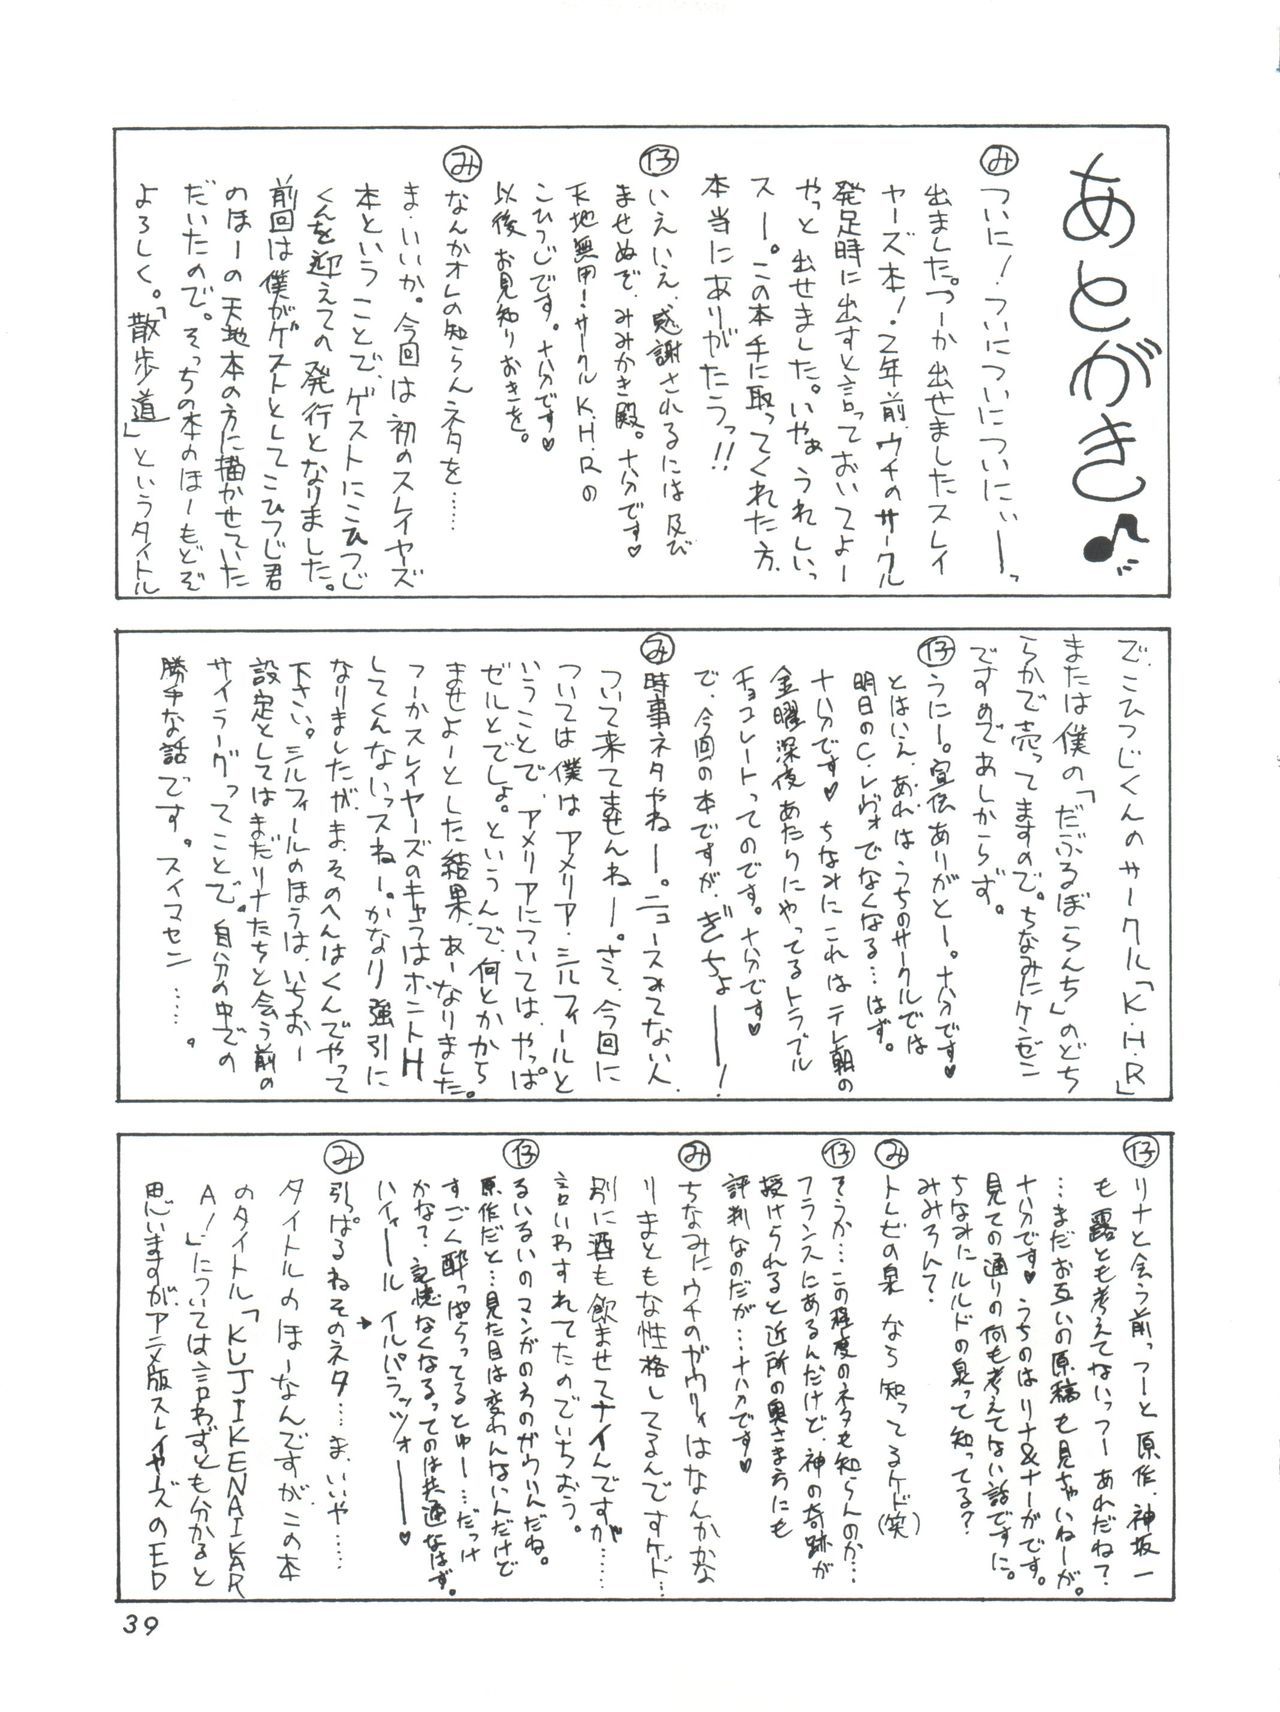 あとがき♪
み ついに!ついについについにぃーーっ
出ました。つーか出せましたスレイ
ヤーズ本!2年前、ウチのサークル
発足時に出すと言っておいてよー
やっと出せました。いやぁうれしいっ
スー。この本手に取ってくれた方、
本当にありがたうっ!!
仔 いえいえ、感謝されるには及び
ませぬぞ、みみかき殿。十分です♥
天地無用!サークルK.H.Rの
こひつじです。十分です♥
以後お見知りおきを。
み なんかオレの知らんネタを……
ま、いいか。今回は初のスレイヤーズ
本ということで、ゲストにこひつじ
くんを迎えての発行となりました。
前回は僕がゲストとしてこひつじ君
のほーの天地本の方に描かせていた
だいたので。そっちの本のほーもどぞ
よろしく。「散歩道」というタイトル
で、こひつじくんのサークル「K.H.R」
または僕の「だぶるぼらんち」のどち
らかで売ってますので。ちなみにケンゼン
ですのであしからず。
仔 うにー。宣伝ありがとー。十分です♥
とはいえ、あれはうちのサークルでは
明日のC.レヴォでなくなる…はず。
十分です♥ちなみにこれはテレ朝の
金曜深夜あたりにやってるトラブル
チョコレートってのです。十分です♥
で、今回の本ですが、ぎちょーー!
み 時事ネタやねー。ニュースみてない人、
ついて来てませんねー。さて、今回に
ついては僕はアメリア・シルフィールと
いうことで、アメリアについては、やっぱ
ゼルとでしょ。というんで、何とかから
ませよーとした結果、あーなりました。
つーかスレイヤーズのキャラはホントH
してくんないっスねー。かなり強引に
なりましたが、ま、そのへんはくんでやって
下さい。シルフィールのほうは、いちおー
設定としてはまだリナたちと会う前の
サイラーグってことで。自分の中での
勝手な話です。スイマセン……。
仔 リナと会う前っつーと原作、神坂一
も露とも考えてないっつーあれだね?
…まだお互いの原稿も見ちゃいねーが。
十分です♥うちのはリナ&ナーガです。
見ての通りの何も考えてない話ですに。
ちなみにルルドの泉って知ってる?
みみろん?
み トレビの泉なら知ってるケド(笑)
仔 そうか…この程度のネタも知らんのか…
フランスにあるんだけど、神の奇跡が
授けられると近所の奥さま方にも
評判なのだが…十分です♥
み ちなみにウチのガウリィはなんかかな
りまともな性格してるんですケド…
別に酒も飲ませてナイんですが……
言いわすれてたのでいちおう。
仔 るいるいのマンガのろのガウリんだね。
原作だと…見た目は変わんないんだけど
すごく酔っぱらってるとゆー…だっけ
かなて、記憶なくなるってのは共通なはず。
ハイヤール イルパラッツォーーー♥
み 引っぱるねそのネタ…ま、いいや……
タイトルのほーなんですが、この本
のタイトル「KUJIKENAIKAR
A!」については言わずとも分かると
思いますが、アニメ版スレイヤーズのED
39